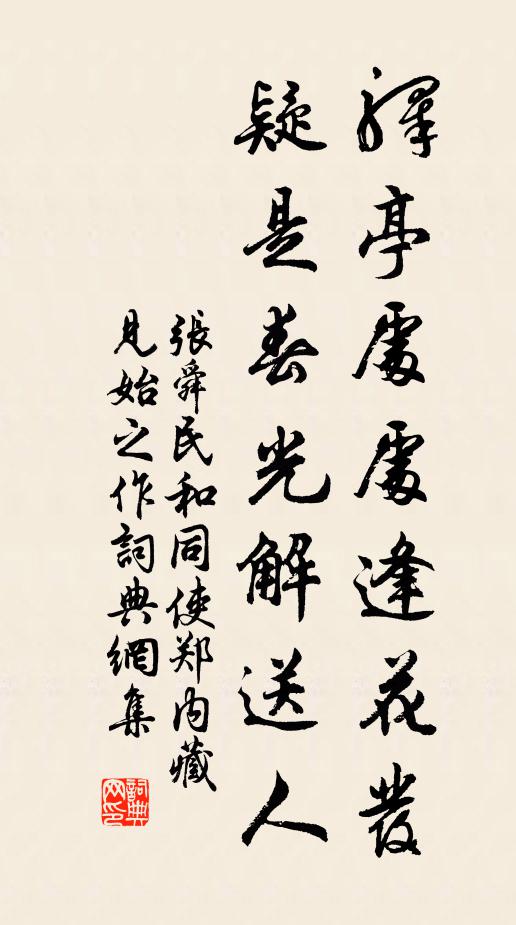 驛亭處處逢花發
疑是春光解送人
張舜民和同使郑内藏
見始之作詞典網集
詞典网印